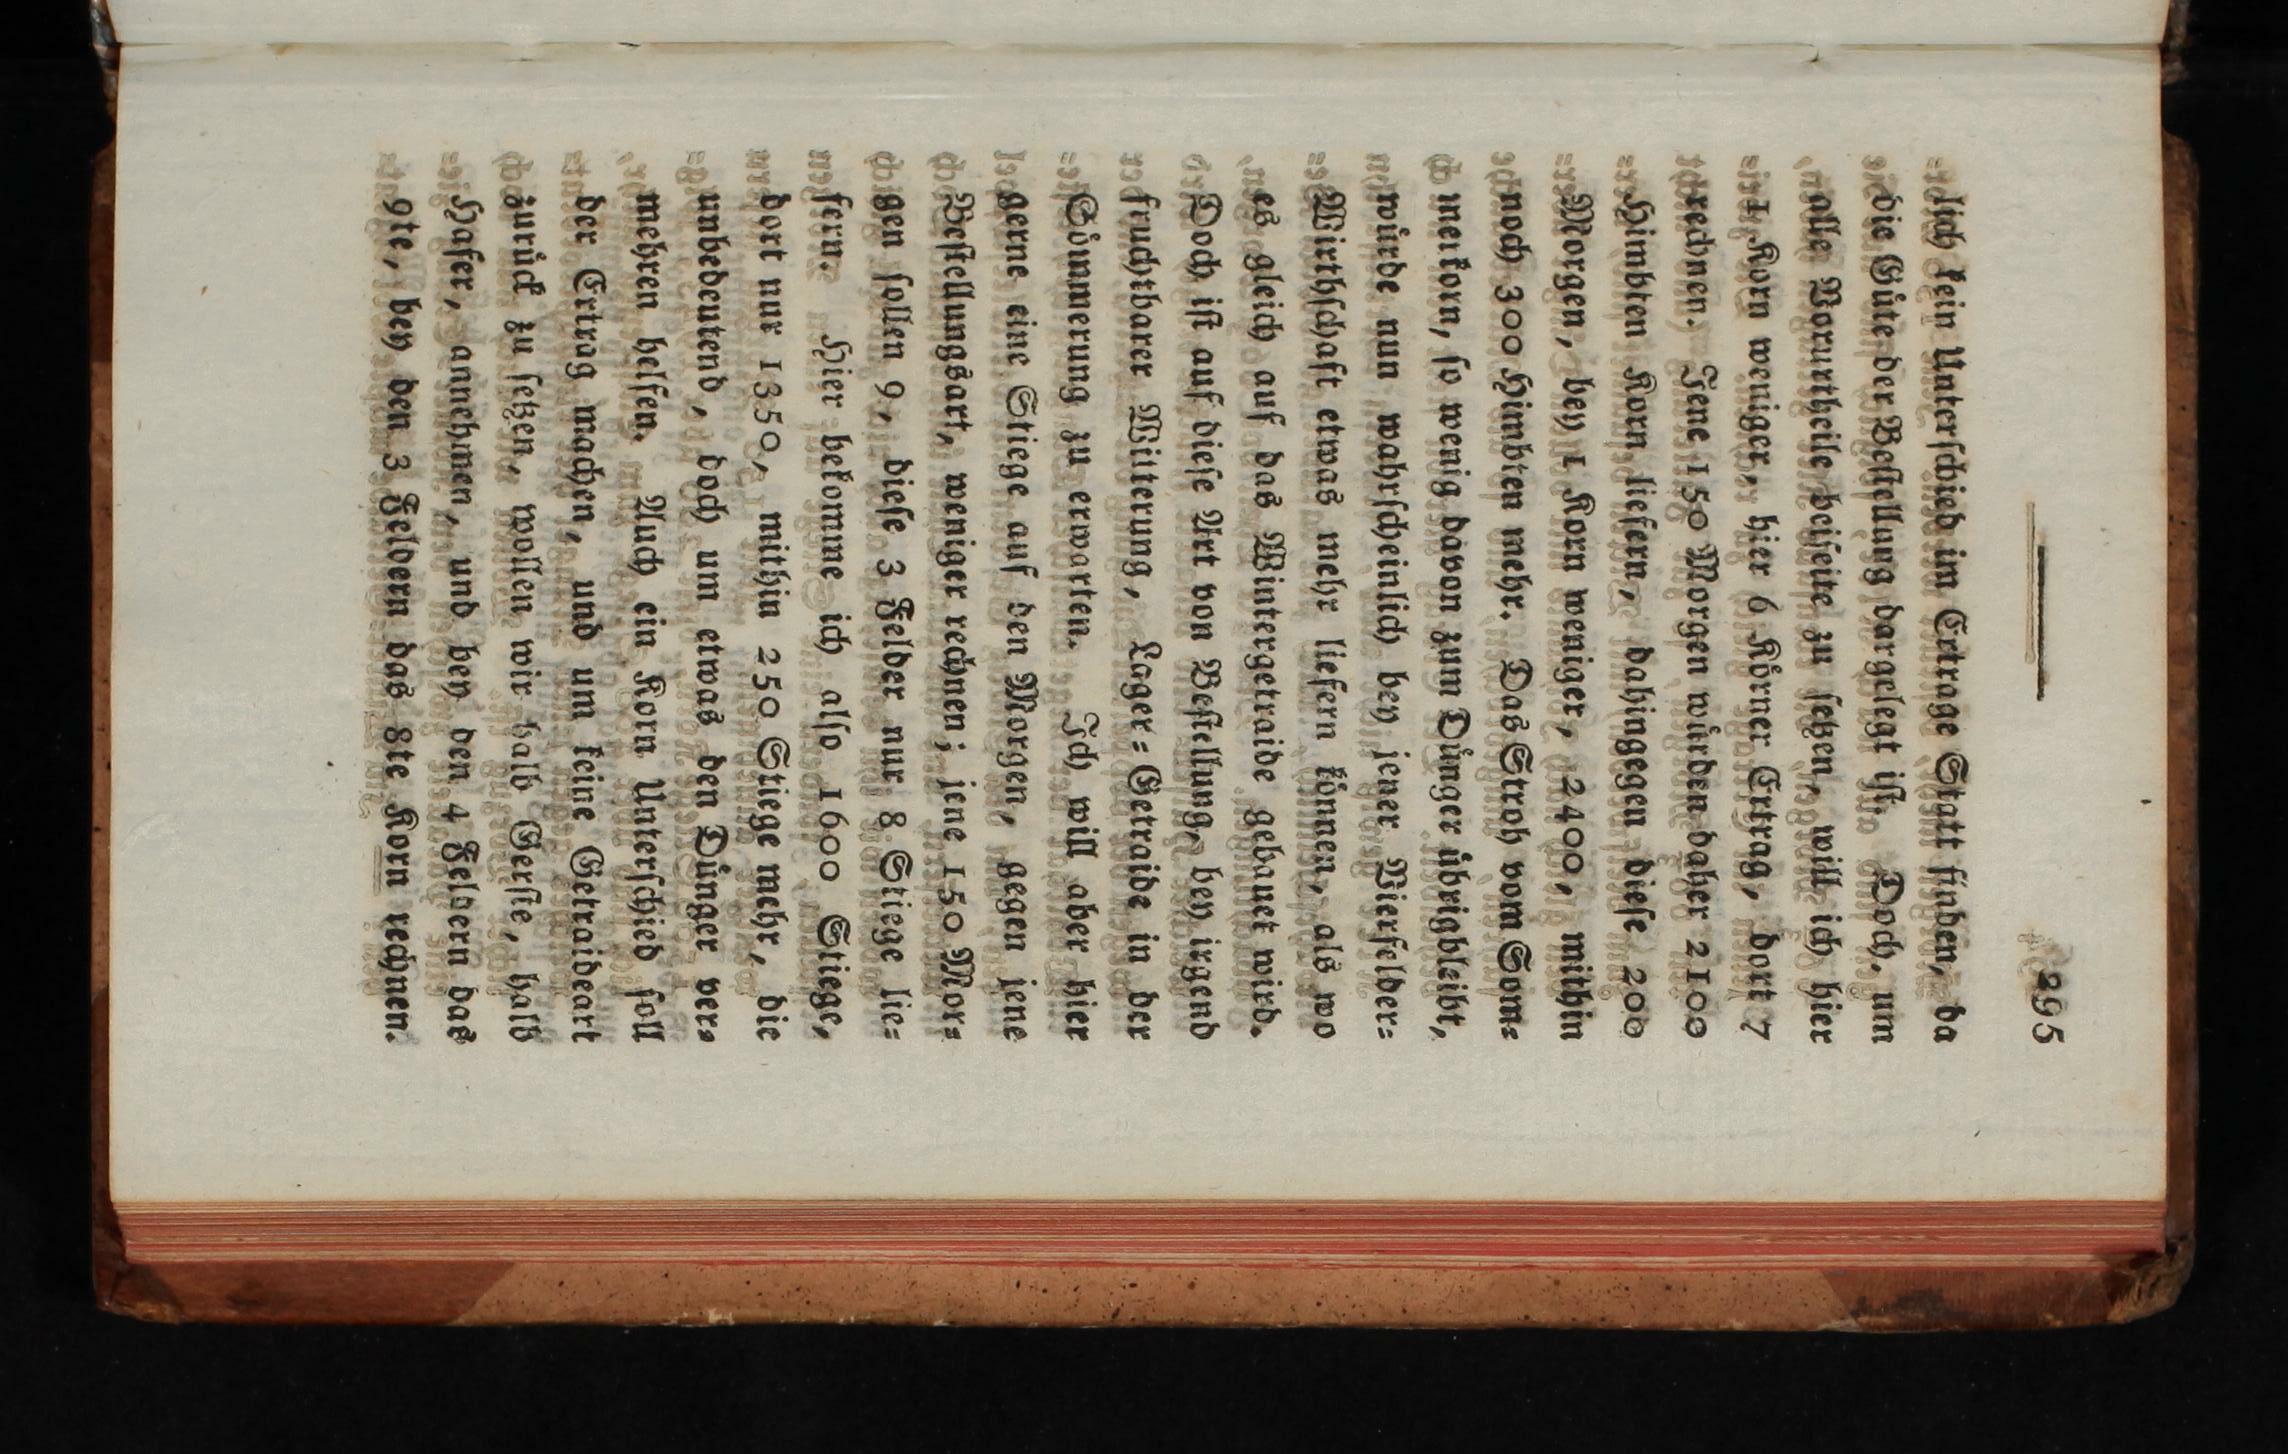 295
lich kein Unterschied im Ertrage Statt finden, da
die Güte der Bestellung dargelegt ist. Doch, um
alle Vorurtheile beiseite zu setzen, will ich hier
1 Korn weniger, hier 6 Körner Ertrag, dort 7
rechnen. Jene 150 Morgen würden daher 2100
Himbten Korn liefern, dahingegen diese 200
Morgen, bey 1 Korn weniger, 2400, mithin
noch 300 Himbten mehr. Das Stroh vom Som=
merkorn, so wenig davon zum Dünger übrigbleibt,
würde nun wahrscheinlich bey jener Vierfelder=
Wirthschaft etwas mehr liefern können, als wo
es gleich auf das Wintergetraide gebauet wird.
Doch ist auf diese Art von Bestellung, bey irgend
fruchtbarer Witterung, Lager=Getraide in der
Sömmerung zu erwarten. Ich will aber hier
gerne eine Stiege auf den Morgen, gegen jene
Bestellungsart, weniger rechnen; jene 150 Mor=
gen sollen 9, diese 3 Felder nur 8 Stiege lie=
fern. Hier bekomme ich also 1600 Stiege,
dort nur 1350, mithin 250 Stiege mehr, die
unbedeutend, doch um etwas den Dünger ver=
mehren helfen. Auch ein Korn Unterschied soll
der Ertrag machen, und um keine Getraideart
zurück zu setzen, wollen wir halb Gerste, halb
Hafer, annehmen, und bey den 4 Feldern das
9te, bey den 3 Feldern das 8te Korn rechnen.